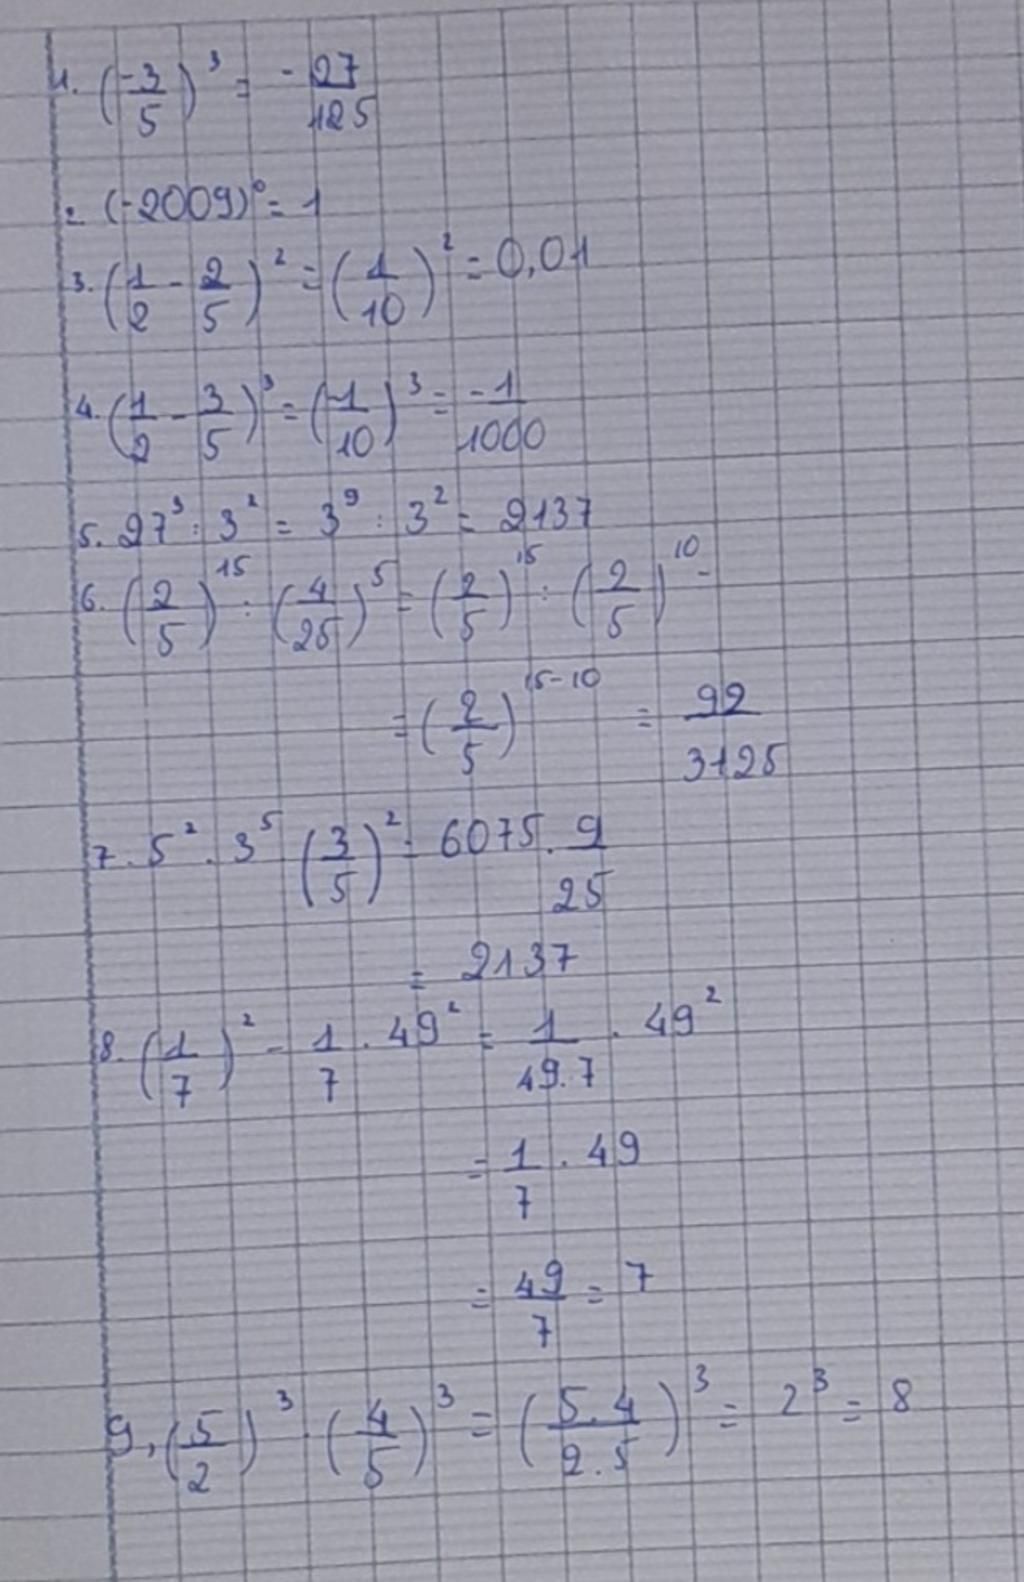 1. (-3/5)³ = -27/125
2. (-2009)⁰ = 1
3. (1/2 - 2/5)² = (1/10)² = 0,01
4. (1/2 - 3/5)³ = (-1/10)³ = -1/1000
5. 27³ : 3² = 3⁹ : 3² = 2137
6. (2/5)¹⁵ : (4/25)⁵ = (2/5)¹⁵ : (2/5)¹⁰ =
= (2/5)¹⁵⁻¹⁰ = 92/3125
7. 5² . 3⁵ (3/5)² = 6075 . 9/25
= 2137
8. (1/7)² - 1/7 . 49² = 1/49.7 . 49²
= 1/7 . 49
= 49/7 = 7
9, (5/2)³ . (4/5)³ = (5.4/2.5)³ = 2³ = 8